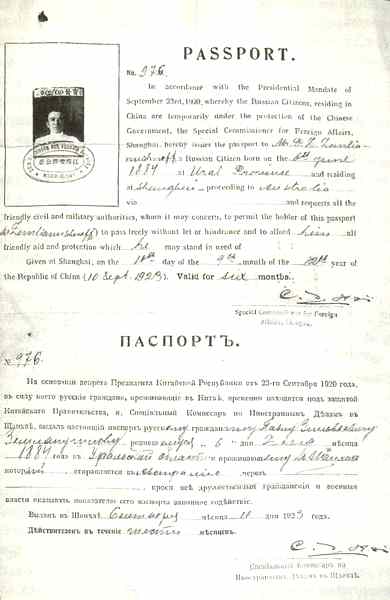 PASSPORT.
No. 976.
In accordance with the Presidential Mandate of
September 23rd, 1920, whereby the Russian Citizens, residing in
China are temporarily under the protection of the Chinese
Government, the Special Commissioner for Foreign Affairs,
Shanghai, hereby issues the passport to Mr.
a Russian Citizen born on the 6th June
1887 at Ural Province and residing
at Shanghai proceeding to Australia
via and requests all the
friendly civil and military authorities, whom it may concern, to permit the holder of this passport
to pass freely without let or hindrance and to afford him all
friendly aid and protection which he may stand in need of
Given at Shanghai, on the 10th day of the 9th month of the 12th year of
the Republic of China (10 Sept. 1923). Valid for six months.
Special Commissioner for Foreign
Affairs,
ПАСПОРТЪ.
№ 976.
На основаніи декрета Президента Китайской Республики отъ 23-го Сентября 1920 года,
въ силу коего русскіе граждане, проживающіе въ Китаѣ, временно находятся подъ защитой
Китайскаго Правительства, и, Спеціальный Комиссаръ по Иностраннымъ Дѣламъ въ
Шанхаѣ, выдалъ настоящій паспортъ русскому гражданину Павлу Зиновьевичу
Землянушнову, родившемуся „ 6 " дня Іюня мѣсяца
1887 года въ Уральской области и проживающему въ Шанхаѣ
который отправляется въ Австралію черезъ
проситъ всѣ дружественныя гражданскія и военныя
власти оказывать показателю сего паспорта законное содѣйствіе.
Выданъ въ Шанхаѣ Сентября мѣсяца 10 дня 1923 года.
Дѣйствителенъ въ теченіе шести мѣсяцевъ.
Спеціальный Комиссаръ по
Иностраннымъ Дѣламъ въ Шанхаѣ.